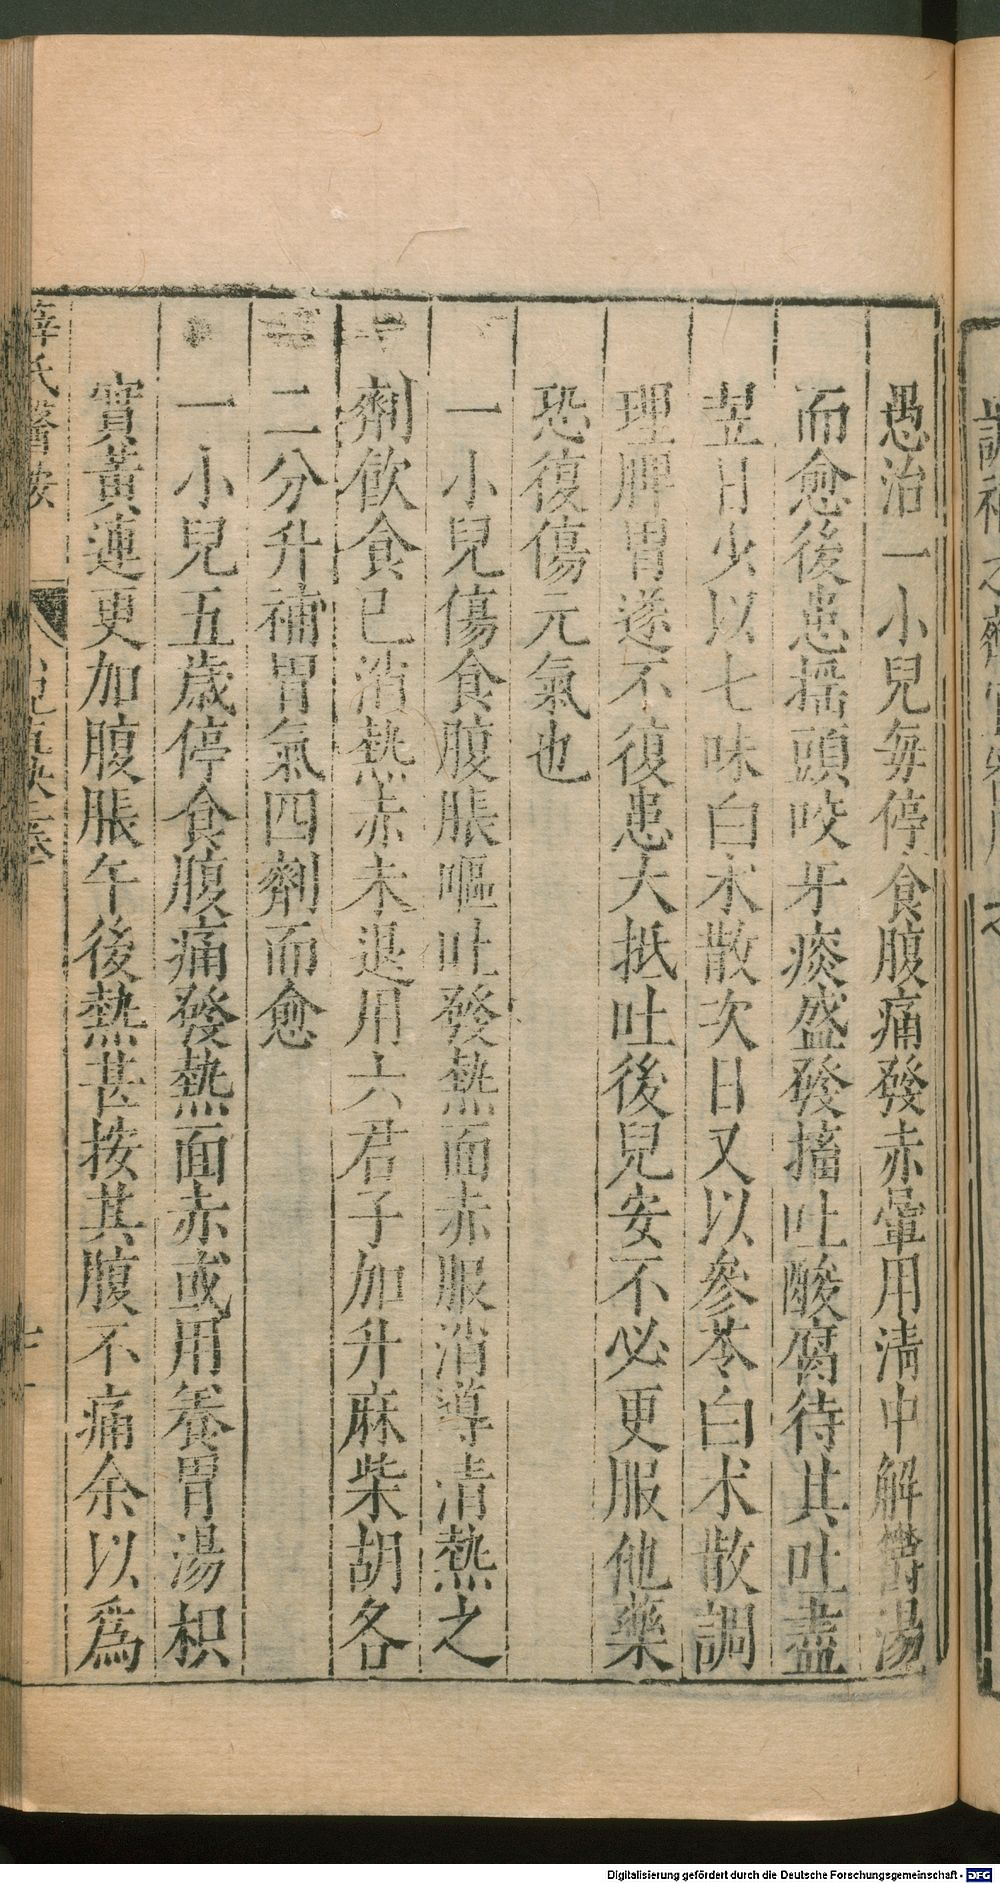 愚治一小兒毎停食腹痛發赤暈用淸中解鬱湯
而愈後患搖頭咬牙痰盛發搐吐酸腐待其吐盡
翌日少以七味白朮散次日又以參苓白朮散調
理脾胃遂不復患大抵吐後兒安不必更服他藥
恐復傷元氣也
一小兒傷食腹脹嘔吐發熱面赤服消導清熱之
劑飲食已消熱赤未退用六君子加升麻柴胡各
二分升補胃氣四劑而愈
一小兒五歲停食腹痛發熱面赤或用養胃湯枳
實黃連更加腹脹午後熱甚按其腹不痛余以爲
薛氏醫按
Digitalisierung gefördert durch die Deutsche Forschungsgemeinschaft - DFG